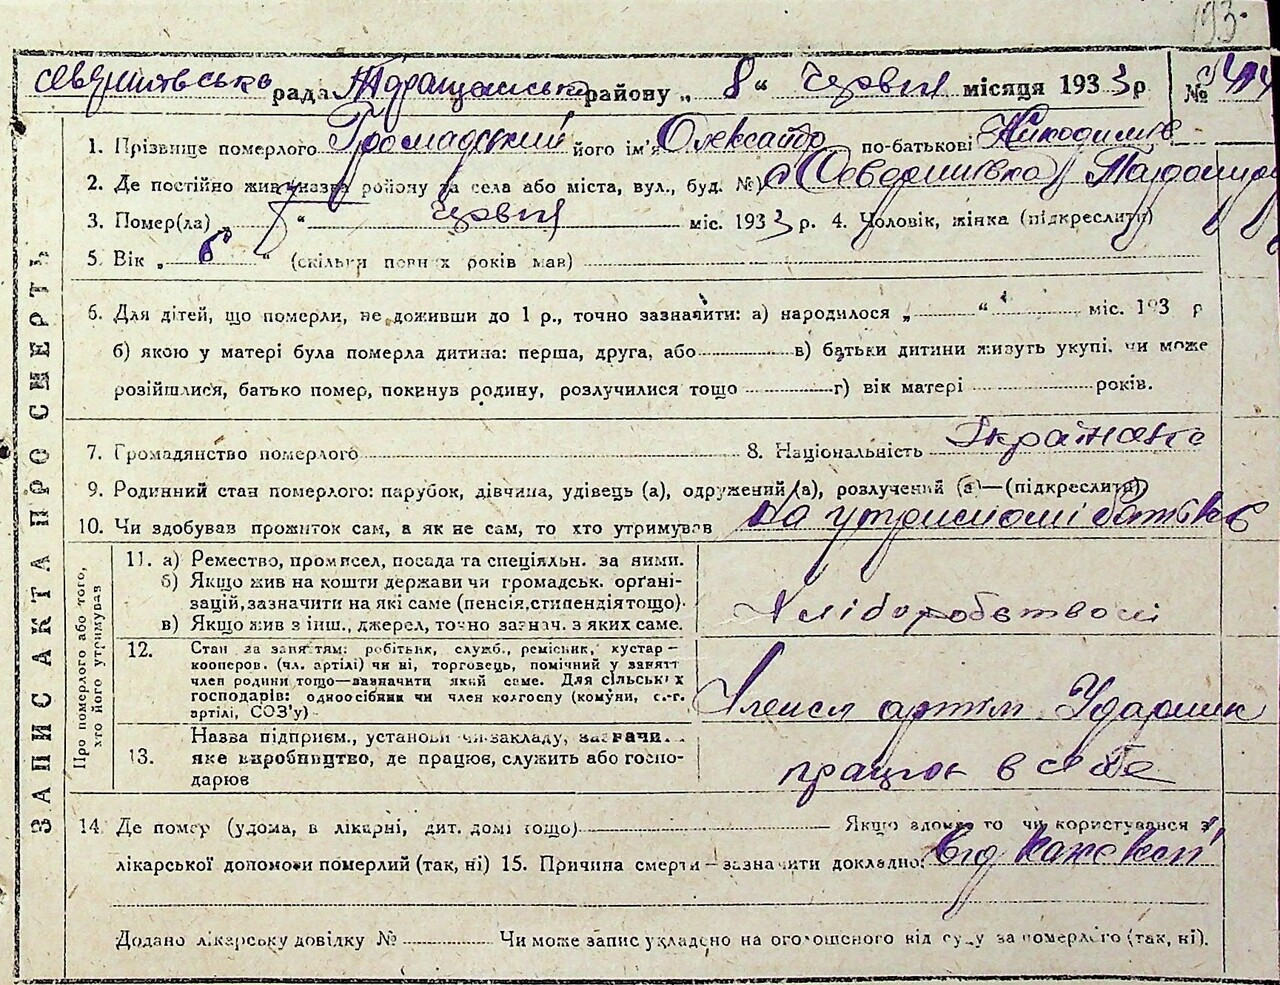 193
рада району „ 8 “ червня місяця 1933 р №
1. Прізвище померлого Громадський його ім'я Олександр по-батькові Никодимів
2. Де постійно жив, назва району та села або міста, вул., буд. №
3. Помер(ла) „ 7 “ червня міс. 1933 р. 4. Чоловік, жінка (підкреслити)
5. Вік „ 6 “ (скільки повних років мав)
6. Для дітей, що померли, не доживши до 1 р., точно зазначити: а) народилося „ “ міс. 193 р
б) якою у матері була померла дитина: перша, друга, або в) батьки дитини живуть укупі. чи може
розійшлися, батько помер, покинув родину, розлучилися тощо г) вік матері років.
7. Громадянство померлого 8. Національність Українське
9. Родинний стан померлого: парубок, дівчина, удівець (а), одружений (а), розлучений (а)—(підкреслити)
10. Чи здобував прожиток сам, а як не сам, то хто утримував на утриманні батьків
ЗАПИС АКТА ПРО СМЕРТЬ
Про померлого або того, хто його утримував
11. а) Ремество, промисел, посада та спеціяльн. за ними.
б) Якщо жив на кошти держави чи громадськ. орґані-
зацій, зазначити на які саме (пенсія, стипендія тощо).
в) Якщо жив з інш., джерел, точно зазнач. з яких саме.
хліборобством
12. Стан за заняттям: робітник, служб., ремісник, кустар—
кооперов. (чл. артілі) чи ні, торговець, помічний у занятт
член родини тощо—зазначити який саме. Для сільських
господарів: одноосібник чи член колгоспу (комуни, с.-г.
артілі, СОЗ'у)
артілі Ударник
13. Назва підприєм., установи чи закладу, зазначи.
яке виробництво, де працює, служить або госпо-
дарює
працює в себе
14. Де помер (удома, в лікарні, дит. домі тощо) Якщо вдома то чи користувався з
лікарської допомоги померлий (так, ні) 15. Причина смерти—зазначити докладно: Від
Додано лікарську довідку № Чи може запис укладено на оголошеного від суду за померлого (так, ні).